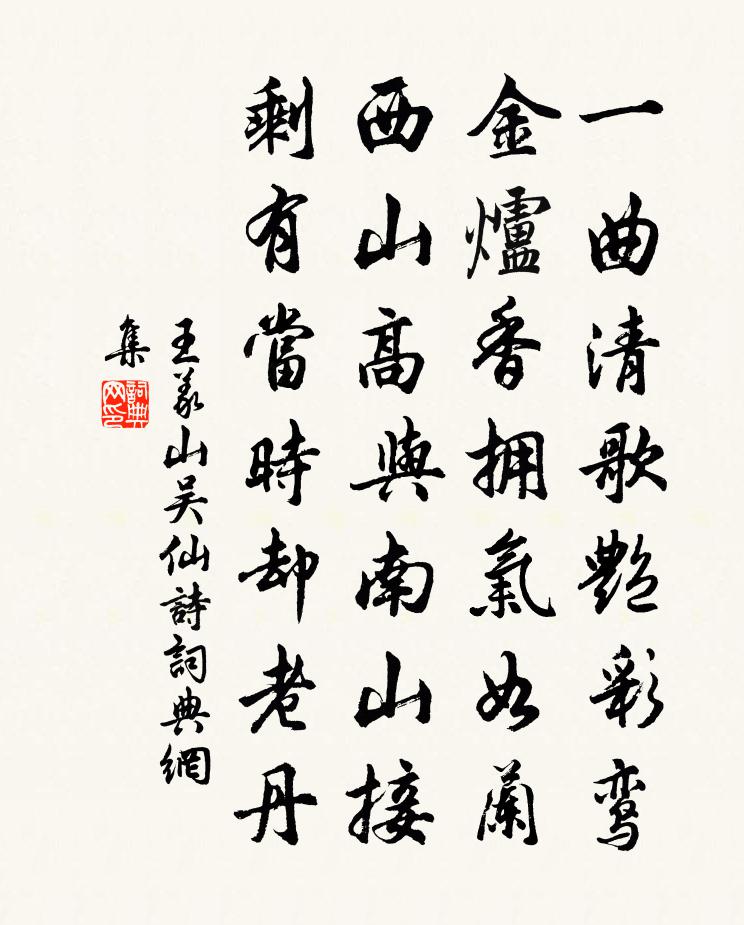 一曲清歌艷彩鸾
金爐香拥氣如蘭
西山高與南山接
剩有當時却老丹
王義山吴仙詩詞典網
集
詞典
网印